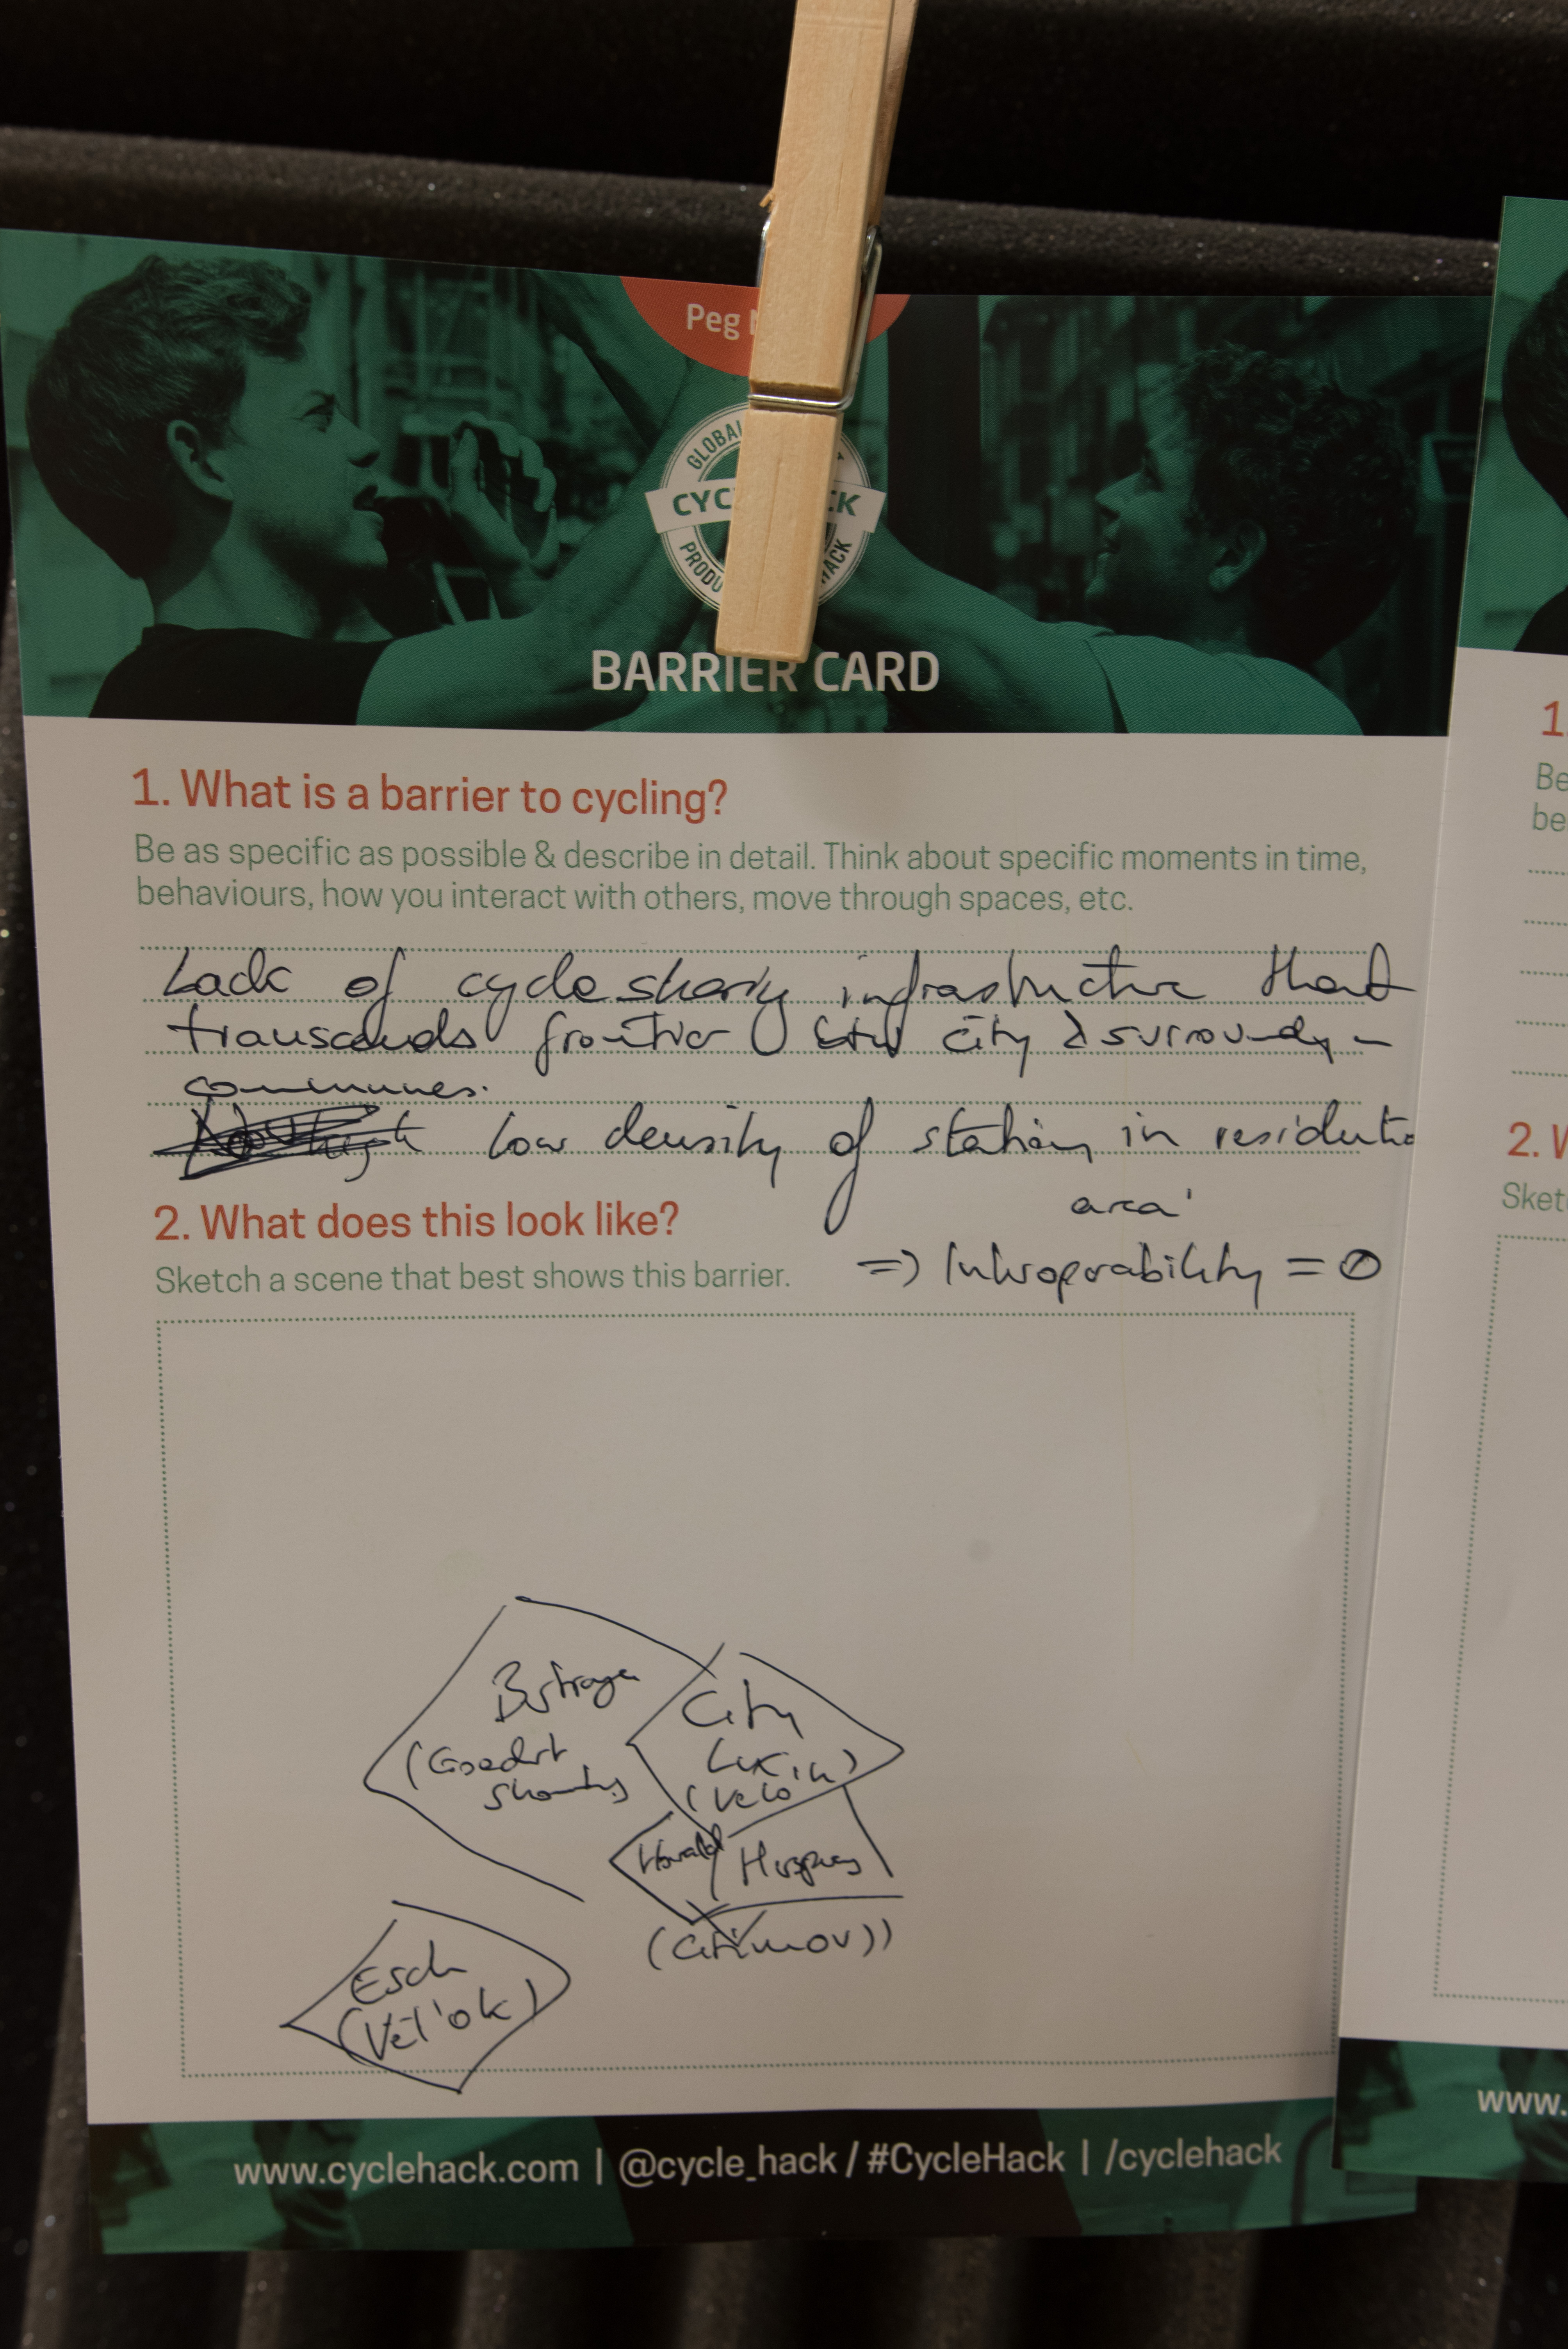 Peg
GLOBAL
CYC CK
PRODU HACK
BARRIER CARD
1. What is a barrier to cycling?
Be as specific as possible & describe in detail. Think about specific moments in time,
behaviours, how you interact with others, move through spaces, etc.
Lack of cycle sharing infrastructure that
transcends frontier btw city & surrounding
communes.
low density of stations in residentia
area
=> Interoperability = 0
2. What does this look like?
Sketch a scene that best shows this barrier.
City
(Velo
Howald
Esch
(Vél'ok)
www.cyclehack.com | @cycle_hack / #CycleHack | /cyclehack
1.
Be
be
2. W
Sket
www.